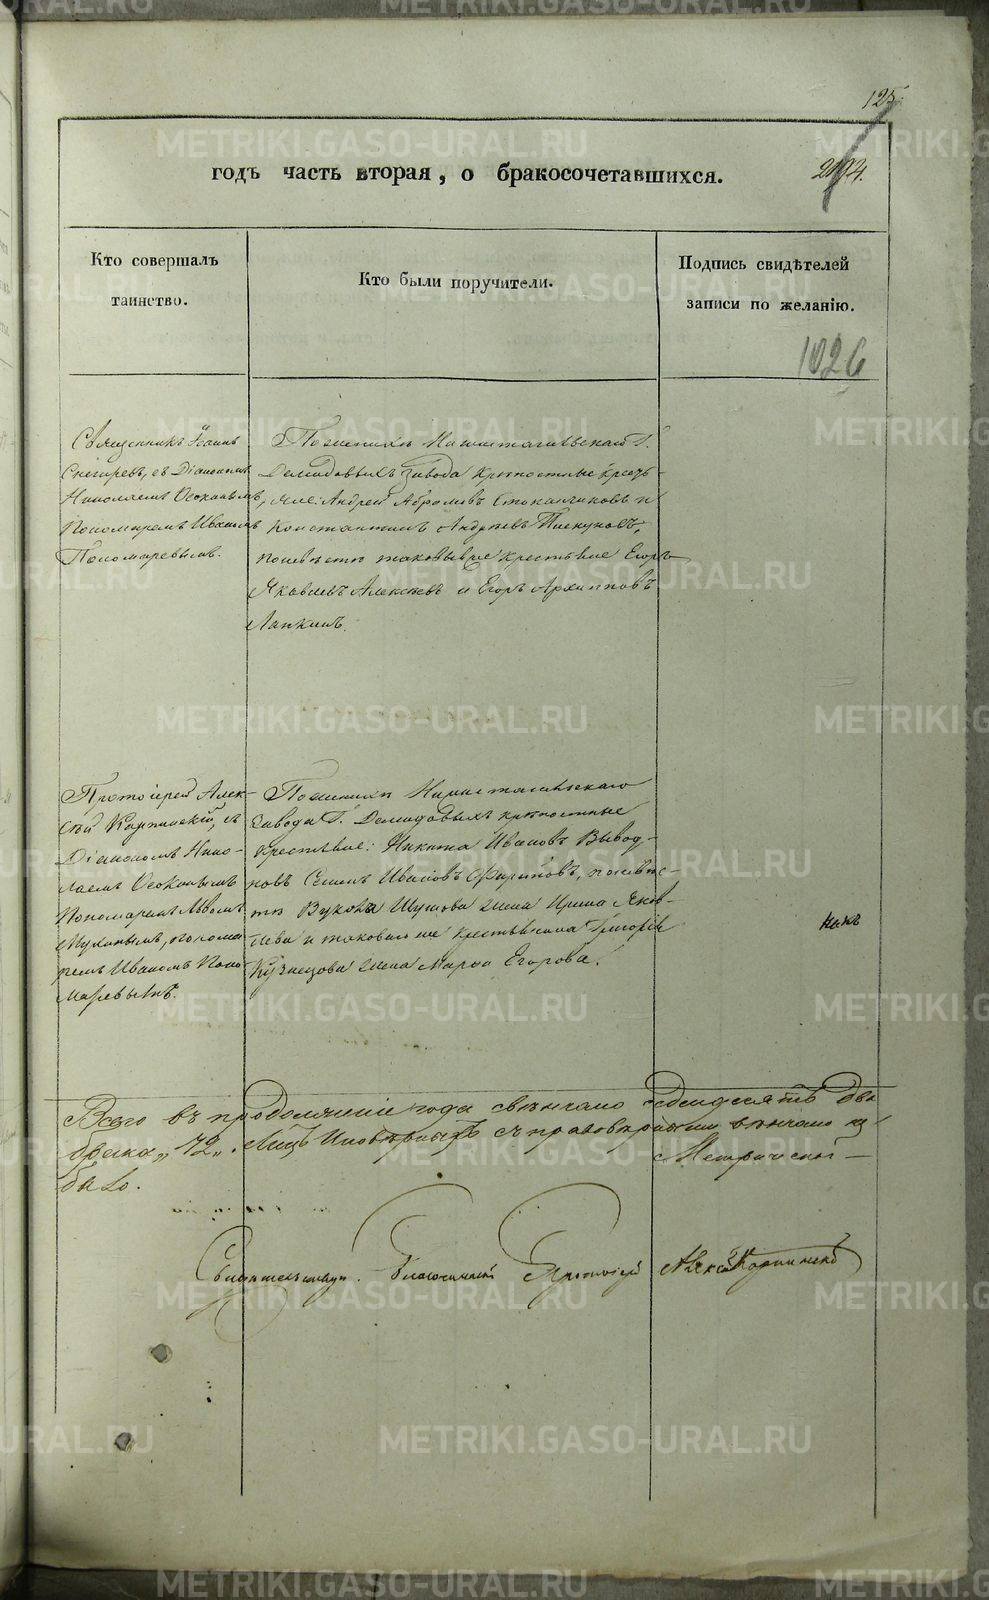 125.
годъ часть вторая, о бракосочетавшихся.
Кто совершалъ
таинство.
Кто были поручители.
Подпись свидѣтелей
записи по желанію.
1026
Священникъ Іоаннъ
Снегиревъ, съ Діакономъ
Николаемъ Осокинымъ,
Пономаремъ Иваномъ
Пономаревымъ.
По женихѣ Нижнетагильскаго Г.
Демидовыхъ завода крѣпостные кресть-
яне: Андрей Абрамовъ и
Константинъ Андреевъ Пискуновъ,
по невѣстѣ таковыеже крестьяне Егоръ
Яковлевъ Алексеевъ и Егоръ Архиповъ
Лапкинъ.
Протоіерей Алек-
сѣй Карпинскій, съ
Діакономъ Нико-
лаемъ Осокинымъ
Пономаремъ Львомъ
Мухинымъ, понома
ремъ Иваномъ Поно-
маревымъ.
По женихѣ Нижнетагильскаго
завода Г. Демидовыхъ крѣпостные
крестьяне: Никита Ивановъ Вывод-
ковъ Семенъ Ивановъ, по невѣс-
тѣ Вукола Шушова жена Ирина Яков-
лева и таковаго же крестьянина Григорія
Кузнецова жена Марѳа Егорова.
Всего въ продолженіе года свѣнчано семдесятъ два
брака „72„. Лицъ иновѣрныхъ съ православными вѣнчано не
было.
Свидѣтельствую. Благочинный Протоіерей Алексѣй Карпинскій
METRIKI.GASO-URAL.RU